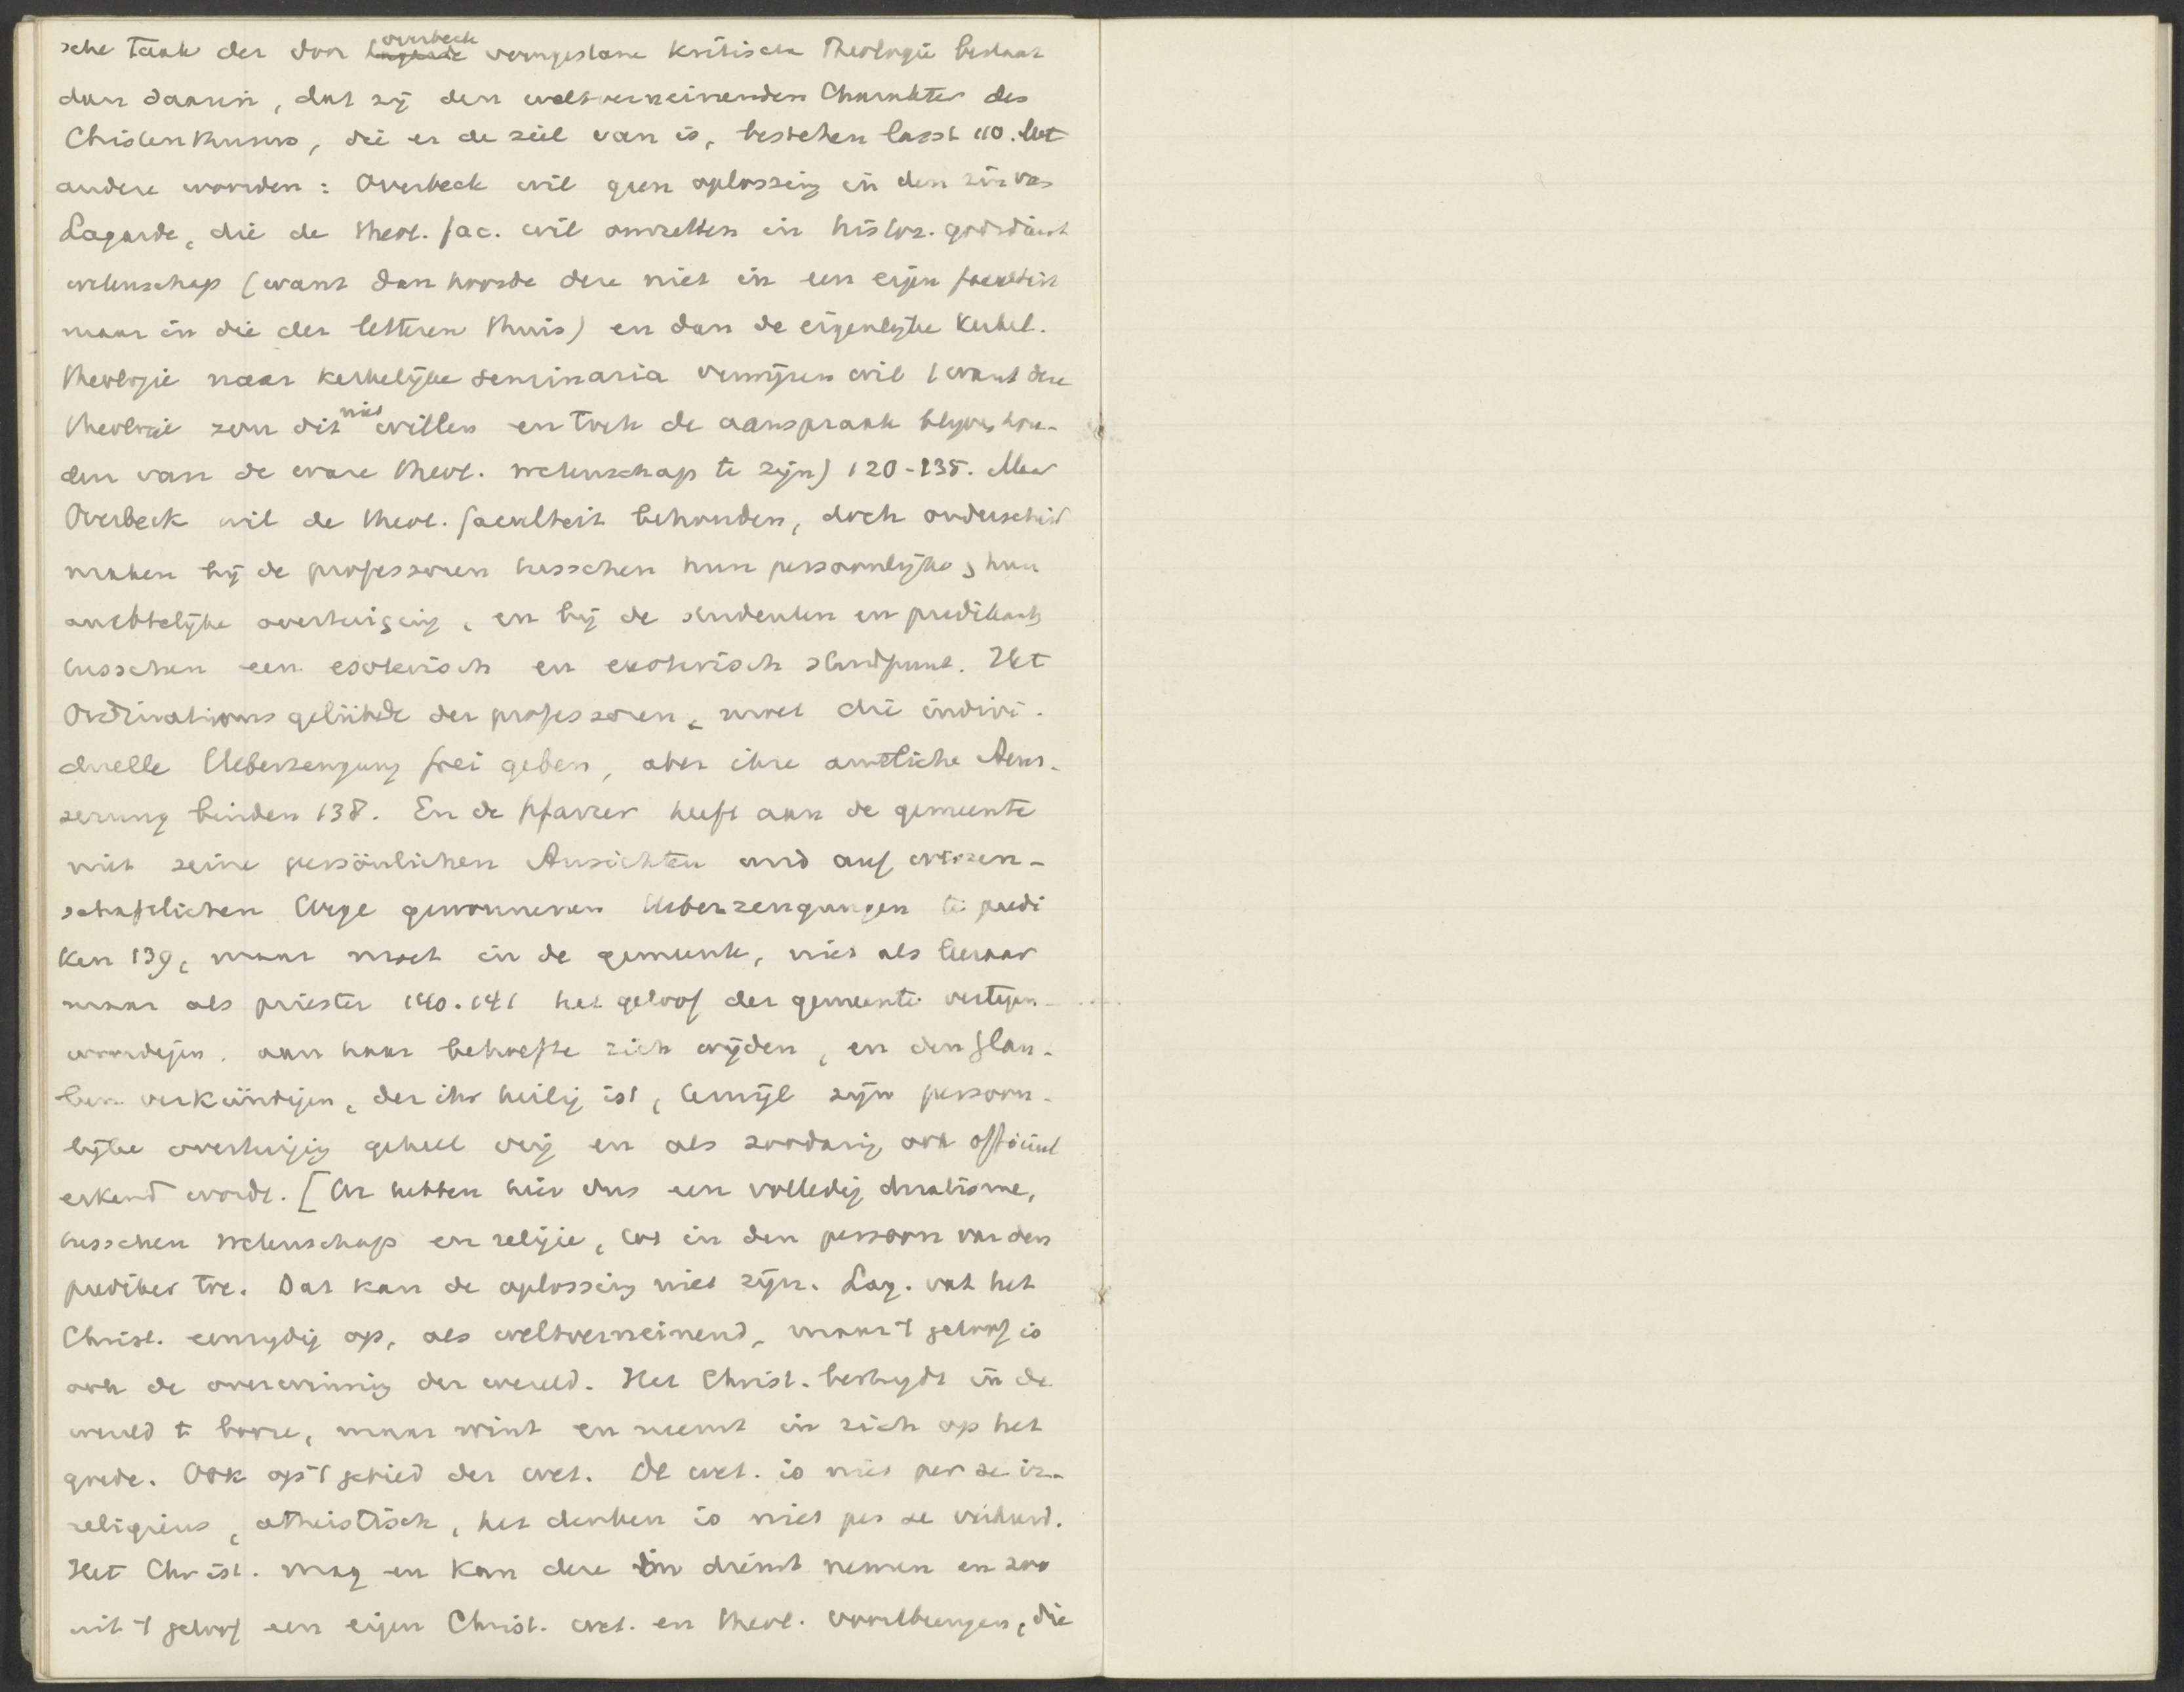 sche Taak der door Overbeck voorgestane Kritische Theologie bestaat
dan daarin, dat zij den weltverneinenden Charakter des
Christenthums, die er de ziel van is, bestehen lasst 110. Met
andere woorden: Overbeck wil geen oplossing in den zin van
Lagarde, die de theol. fac. wil omzetten in histor. godsdienst
wetenschap (want dan hoorde deze niet in een eigen faculteit
maar in die der letteren thuis) en dan de eigenlijke Kerkel.
theologie naar kerkelijke seminaria verwijzen wil (want deze
theologie zou dit niet willen en toch de aanspraak blijven hou-
den van de ware theol. wetenschap te zijn) 120-135. Maar
Overbeck wil de theol. faculteit behouden, doch onderscheid
maken bij de professoren tusschen hun persoonlijke & hun
ambtelijke overtuiging, en bij de studenten en predikants
tusschen een esoterisch en exoterisch standpunt. Het
Ordinationsgelübde der professoren, moet die indivi-
duelle Ueberzeugung frei geben, aber ihre amtliche Aeus-
serung binden 138. En de Pfarrer heeft aan de gemeente
niet seine persönlichen Ansichten und auf wissen-
schaftlichen Wege gewonnenen Ueberzeugungen te predi
ken 139, maar moet in de gemeente, niet als leeraar
maar als priester 140.141 het geloof der gemeente vertegen-
woordigen, aan haar behoefte zich wijden, en den Glau-
ben verkündigen, der ihr heilig ist, terwijl zijn persoon-
lijke overtuiging geheel vrij en als zoodanig ook officieel
erkend wordt. [We hebben hier dus een volledig dualisme,
tusschen wetenschap en religie, tot in den persoon van den
prediker toe. Dat kan de oplossing niet zijn. Lag. vat het
Christ. eenzijdig op, als weltverneinend, maar 't geloof is
ook de overwinning der wereld. Het Christ. bestrijdt in de
wereld 't booze, maar wint en neemt in zich op het
goede. Ook op 't gebied der wet. De wet. is niet per se ir-
religieus, atheistisch, het denken is niet per se verkeerd.
Het Christ. mag en kan deze in dienst nemen en zoo
uit 't geloof een eigen Christ. wet. en theol. voortbrengen, die